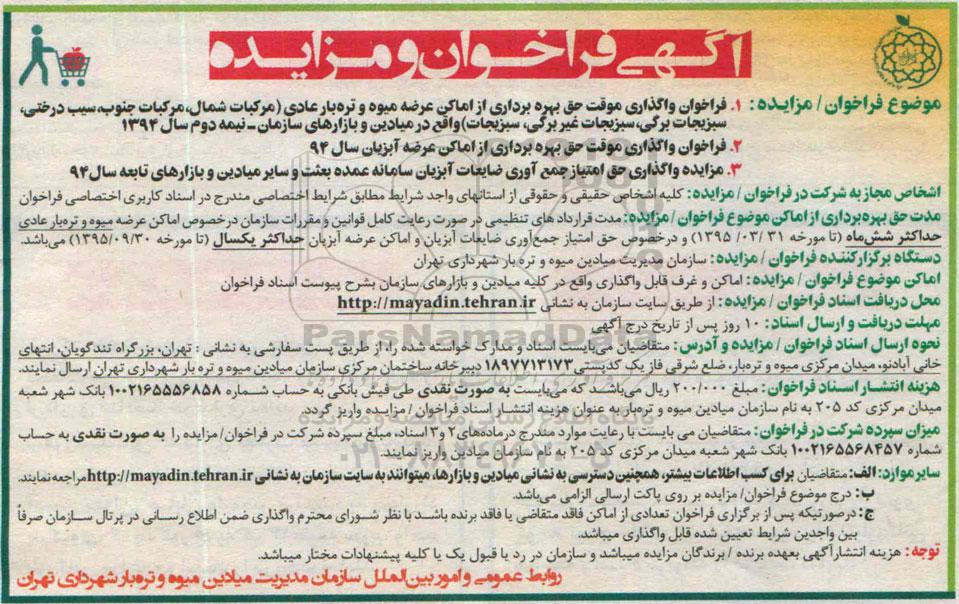 آگهی فراخوان و مزایده
موضوع فراخوان / مزایده : ۱. فراخوان واگذاری موقت حق بهره برداری از اماکن عرضه میوه و تره‌بار عادی (مرکبات شمال، مرکبات جنوب، سیب درختی،
سبزیجات برگی، سبزیجات غیر برگی، سبزیجات) واقع در میادین و بازارهای سازمان ـ نیمه دوم سال ۱۳۹۴
۲. فراخوان واگذاری موقت حق بهره برداری از اماکن عرضه آبزیان سال ۹۴
۳. مزایده واگذاری حق امتیاز جمع آوری ضایعات آبزیان سامانه عمده بعثت و سایر میادین و بازارهای تابعه سال ۹۴
اشخاص مجاز به شرکت در فراخوان / مزایده: کلیه اشخاص حقیقی و حقوقی از استانهای واجد شرایط مطابق شرایط اختصاصی مندرج در اسناد کاربری اختصاصی فراخوان
مدت حق بهره‌برداری از اماکن موضوع فراخوان / مزایده: مدت قرارداد های تنظیمی در صورت رعایت کامل قوانین و مقررات سازمان درخصوص اماکن عرضه میوه و تره‌بار عادی
حداکثر شش‌ماه (تا مورخه ۳۱ /۰۳/ ۱۳۹۵) و درخصوص حق امتیاز جمع‌آوری ضایعات آبزیان و اماکن عرضه آبزیان حداکثر یکسال (تا مورخه ۱۳۹۵/۰۹/۳۰) می‌باشد.
دستگاه برگزارکننده فراخوان / مزایده: سازمان مدیریت میادین میوه و تره بار شهرداری تهران
اماکن موضوع فراخوان / مزایده: اماکن و غرف قابل واگذاری واقع در کلیه میادین و بازارهای سازمان بشرح پیوست اسناد فراخوان
محل دریافت اسناد فراخوان / مزایده: از طریق سایت سازمان به نشانی http://mayadin.tehran.ir
مهلت دریافت و ارسال اسناد: ۱۰ روز پس از تاریخ درج آگهی
نحوه ارسال اسناد فراخوان / مزایده و آدرس: متقاضیان می‌بایست اسناد و مدارک خواسته شده را، از طریق پست سفارشی به نشانی : تهران، بزرگراه تندگویان، انتهای
خانی آبادنو، میدان مرکزی میوه و تره‌بار، ضلع شرقی فاز یک کدپستی ۱۸۹۷۷۱۳۱۷۳ دبیرخانه ساختمان مرکزی سازمان میادین میوه و تره بار شهرداری تهران ارسال نمایند.
هزینه انتشار اسناد فراخوان: مبلغ ۲۰۰/۰۰۰ ریال می‌باشد که می‌بایست به صورت نقدی طی فیش بانکی به حساب شماره ۱۰۰۲۱۶۵۵۵۶۸۵۸ بانک شهر شعبه
میدان مرکزی کد ۲۰۵ به نام سازمان میادین میوه و تره‌بار به عنوان هزینه انتشار اسناد فراخوان / مزایده واریز گردد.
میزان سپرده شرکت در فراخوان: متقاضیان می بایست با رعایت موارد مندرج درماده‌های ۲ و ۳ اسناد، مبلغ سپرده شرکت در فراخوان/ مزایده را به صورت نقدی به حساب
شماره ۱۰۰۲۱۶۵۵۶۸۴۵۷ بانک شهر شعبه میدان مرکزی کد ۲۰۵ به نام سازمان میادین واریز نمایند.
سایر موارد: الف: متقاضیان برای کسب اطلاعات بیشتر، همچنین دسترسی به نشانی میادین و بازارها، میتوانند به سایت سازمان به نشانی http://mayadin.tehran.ir مراجعه نمایند.
ب: درج موضوع فراخوان/ مزایده بر روی پاکت ارسالی الزامی می‌باشد.
ج: درصورتیکه پس از برگزاری فراخوان تعدادی از اماکن فاقد متقاضی یا فاقد برنده باشد با نظر شورای محترم واگذاری ضمن اطلاع رسانی در پرتال سازمان صرفاً
بین واجدین شرایط تعیین شده قابل واگذاری میباشد.
توجه: هزینه انتشار آگهی بعهده برنده / برندگان مزایده میباشد و سازمان در رد یا قبول یک یا کلیه پیشنهادات مختار میباشد.
روابط عمومی و امور بین‌الملل سازمان مدیریت میادین میوه و تره‌بار شهرداری تهران
ParsNamadData